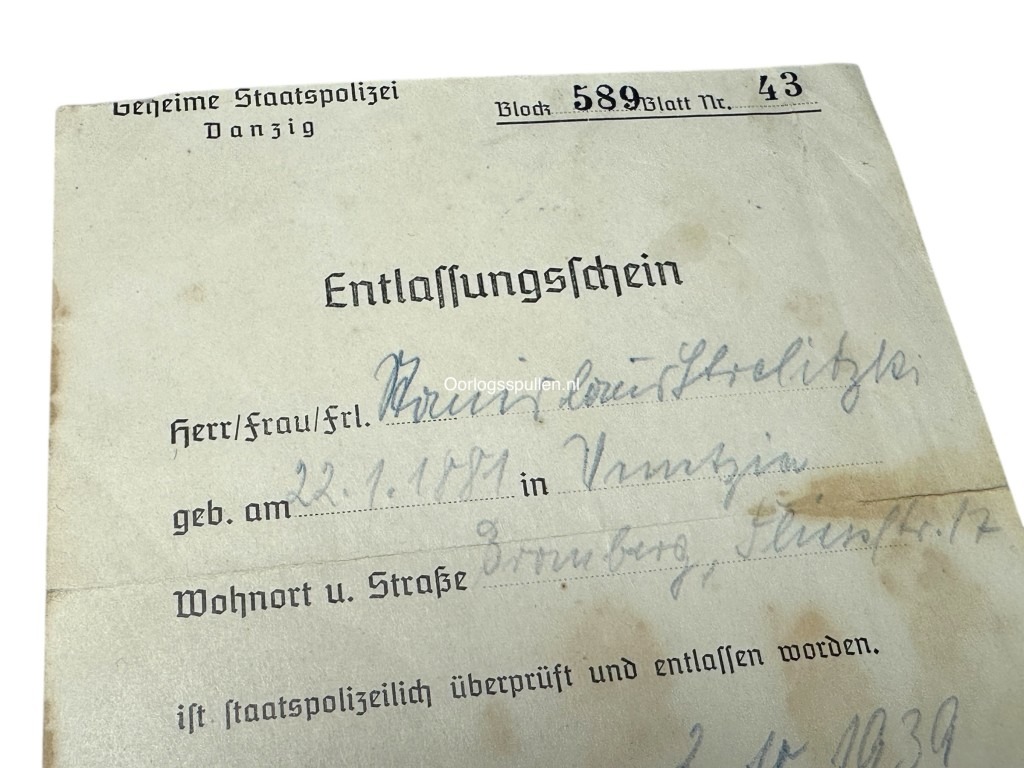 Geheime Staatspolizei
Danzig
Block 589 Blatt Nr. 43
Entlassungsschein
Herr/Frau/Frl. Stanislaus Strelitzki
Oorlogsspullen.nl
geb. am 22.1.1881 in
Wohnort u. Straße Bromberg, 17
ist staatspolizeilich überprüft und entlassen worden.
2. 10. 1939